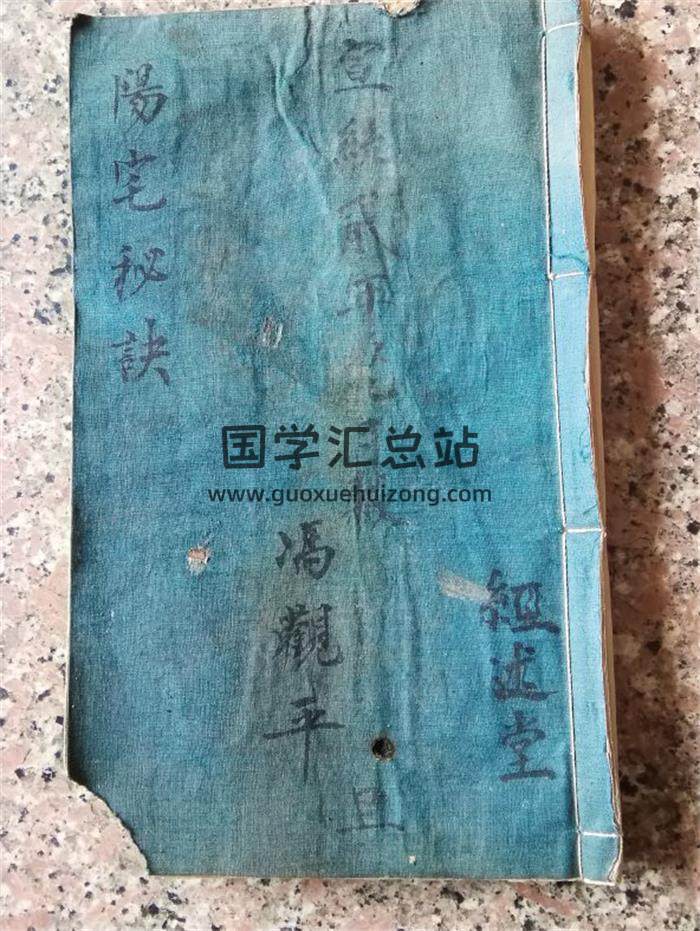 經述堂
宣統貳年
旦
馮觀平
陽宅秘訣
国学汇总站
www.guoxuehuizong.com